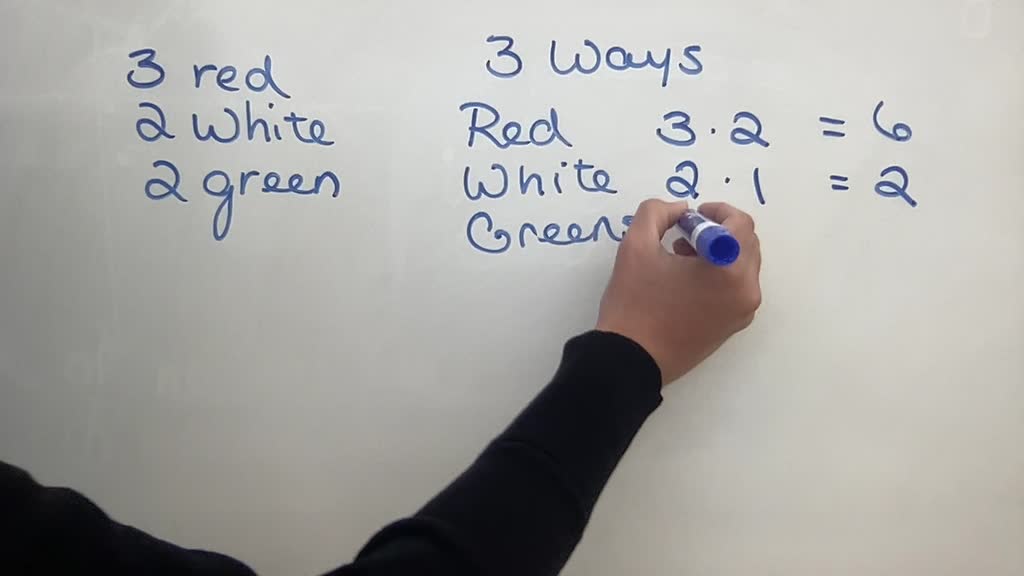 3 red
2 White
2 green
3 Ways
Red 3 · 2 = 6
White 2 · 1 = 2
Greens